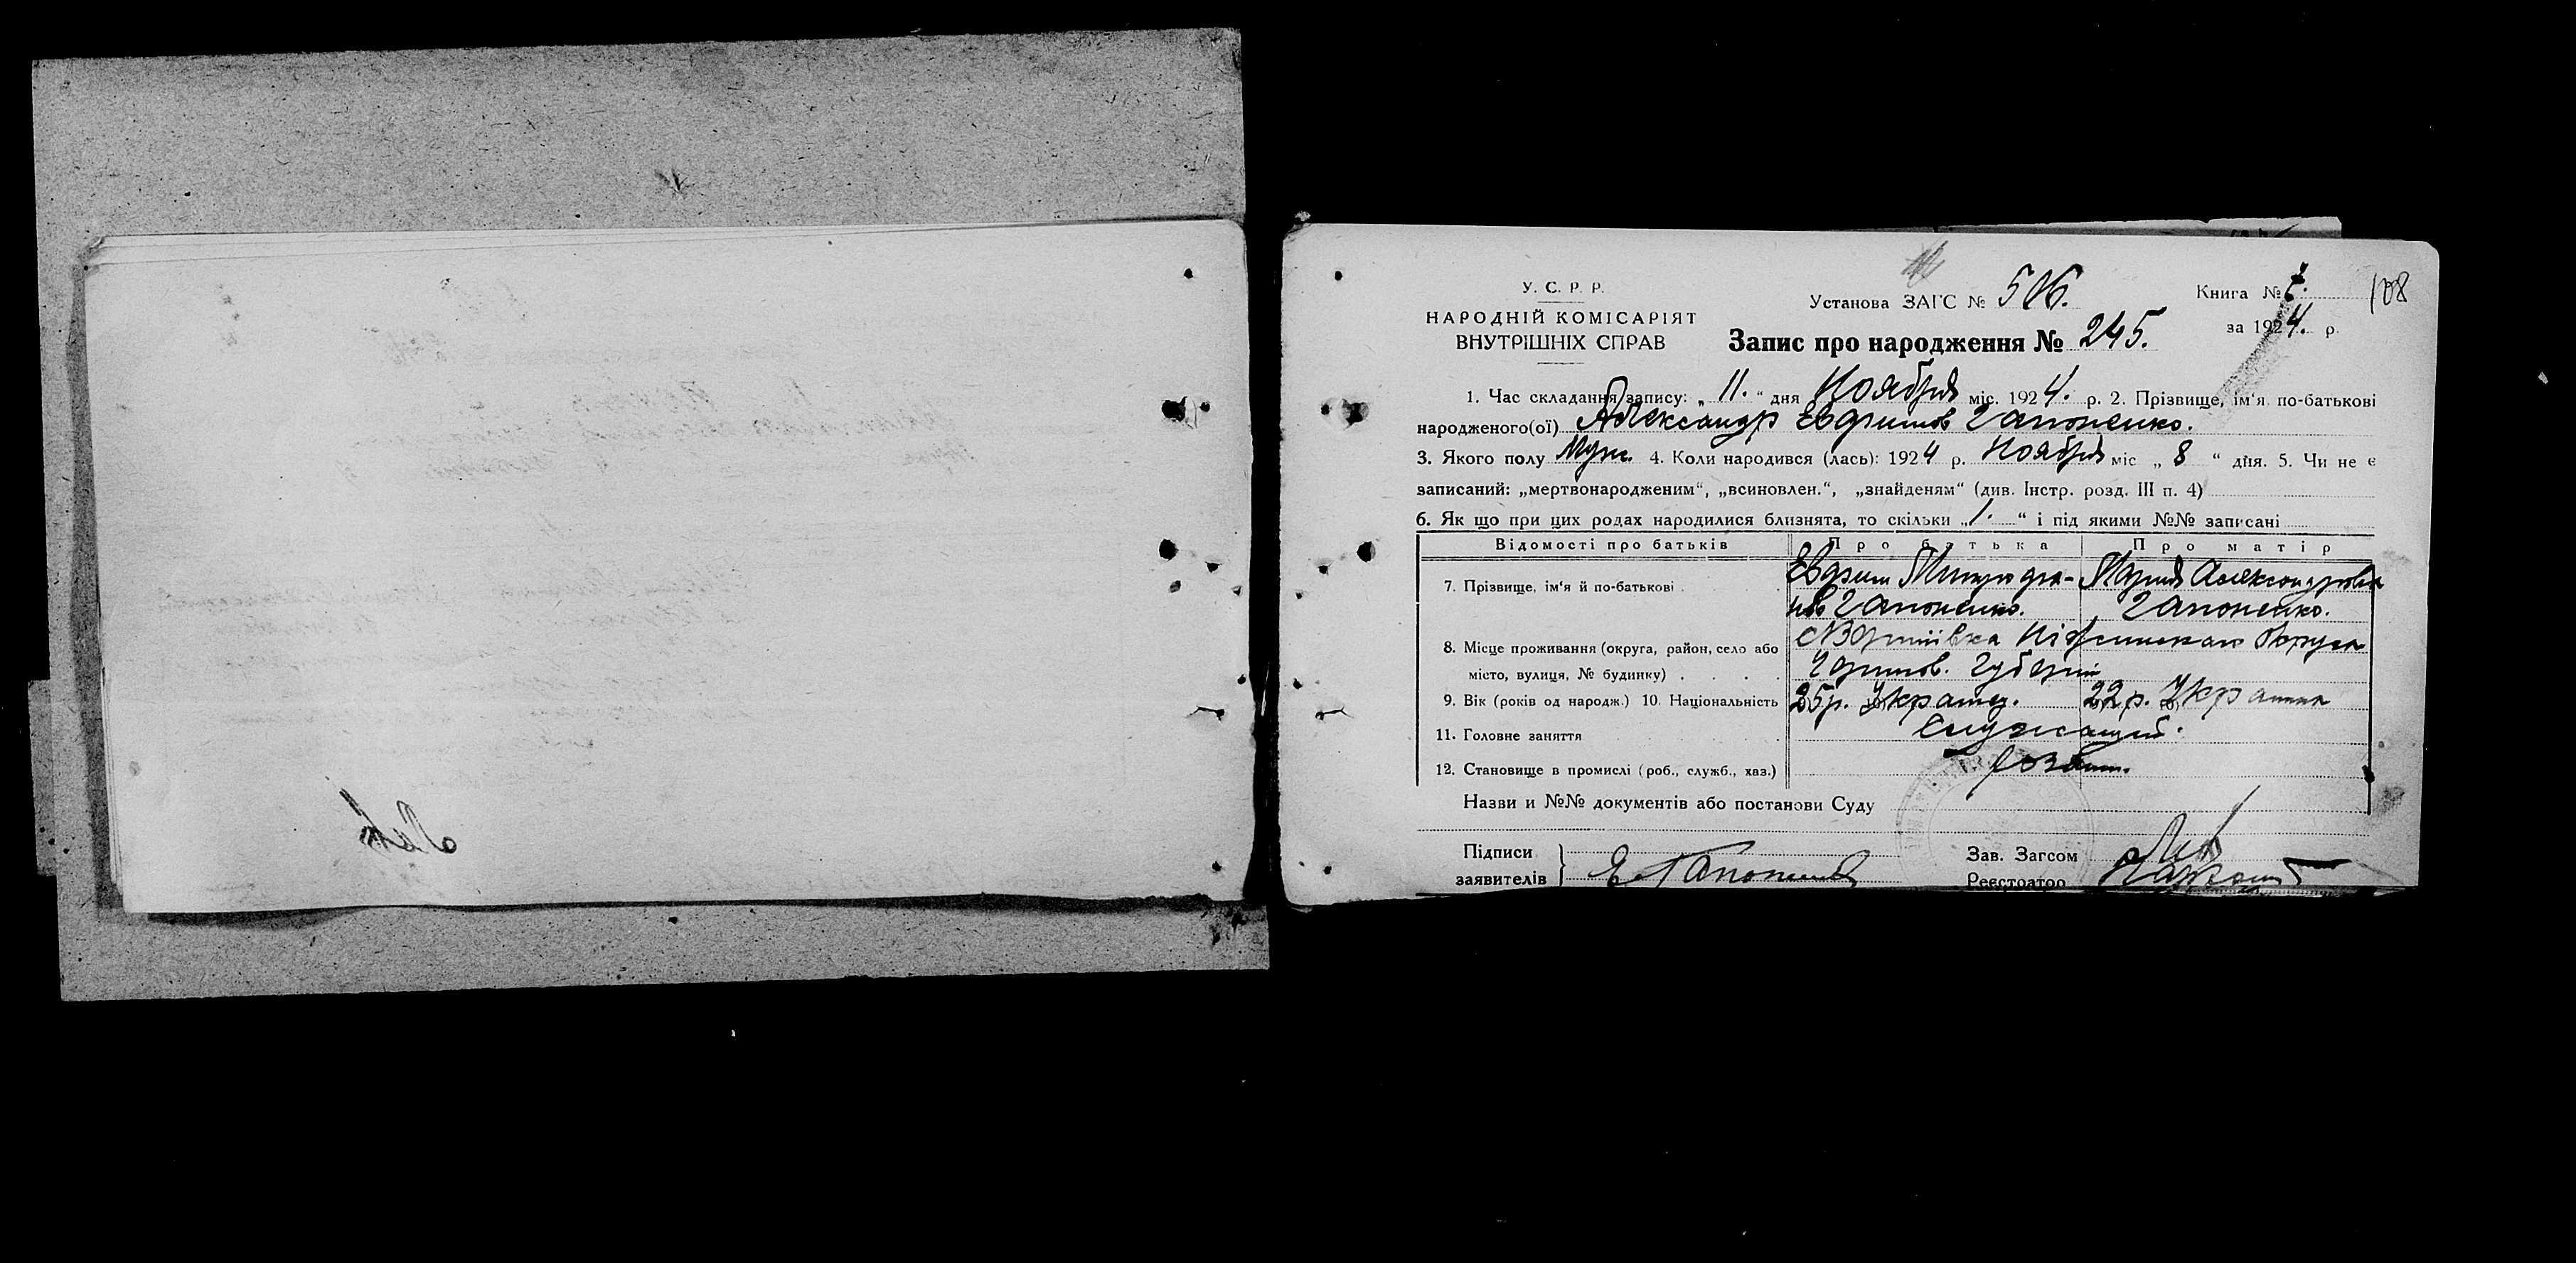 108
У. С. Р. Р.
Установа ЗАГС № 516.
Книга №
НАРОДНІЙ КОМІСАРІЯТ
ВНУТРІШНІХ СПРАВ
за 1924. р.
Запис про народження № 245.
1. Час складання запису: „ 11. “ дня Ноября міс. 1924. р. 2. Прізвище, ім'я по-батькові
народженого(ої) Александр Гапоненко.
3. Якого полу Муж. 4. Коли народився (лась): 1924 р. Ноября міс „ 8 “ дня. 5. Чи не є
записаний: „мертвонародженим“, „всиновлен.“, „знайденям“ (див. Інстр. розд. III п. 4)
6. Як що при цих родах народилися близнята, то скільки „ 1. “ і під якими №№ записані
Відомості про батьків Про батька Про матір
7. Прізвище, ім'я й по-батькові
Мария Александровна
Гапоненко. Гапоненко.
8. Місце проживання (округа, район, село або
місто, вулиця, № будинку)
Губернии
9. Вік (років од народж.) 10. Національність 25р. Украинец. 22р. Украинка
11. Головне заняття Служащий.
12. Становище в промислі (роб., служб., хаз.)
Назви и №№ документів або постанови Суду
Підписи
заявителів Е. Гапоненко
Зав. Загсом
Реєстратор